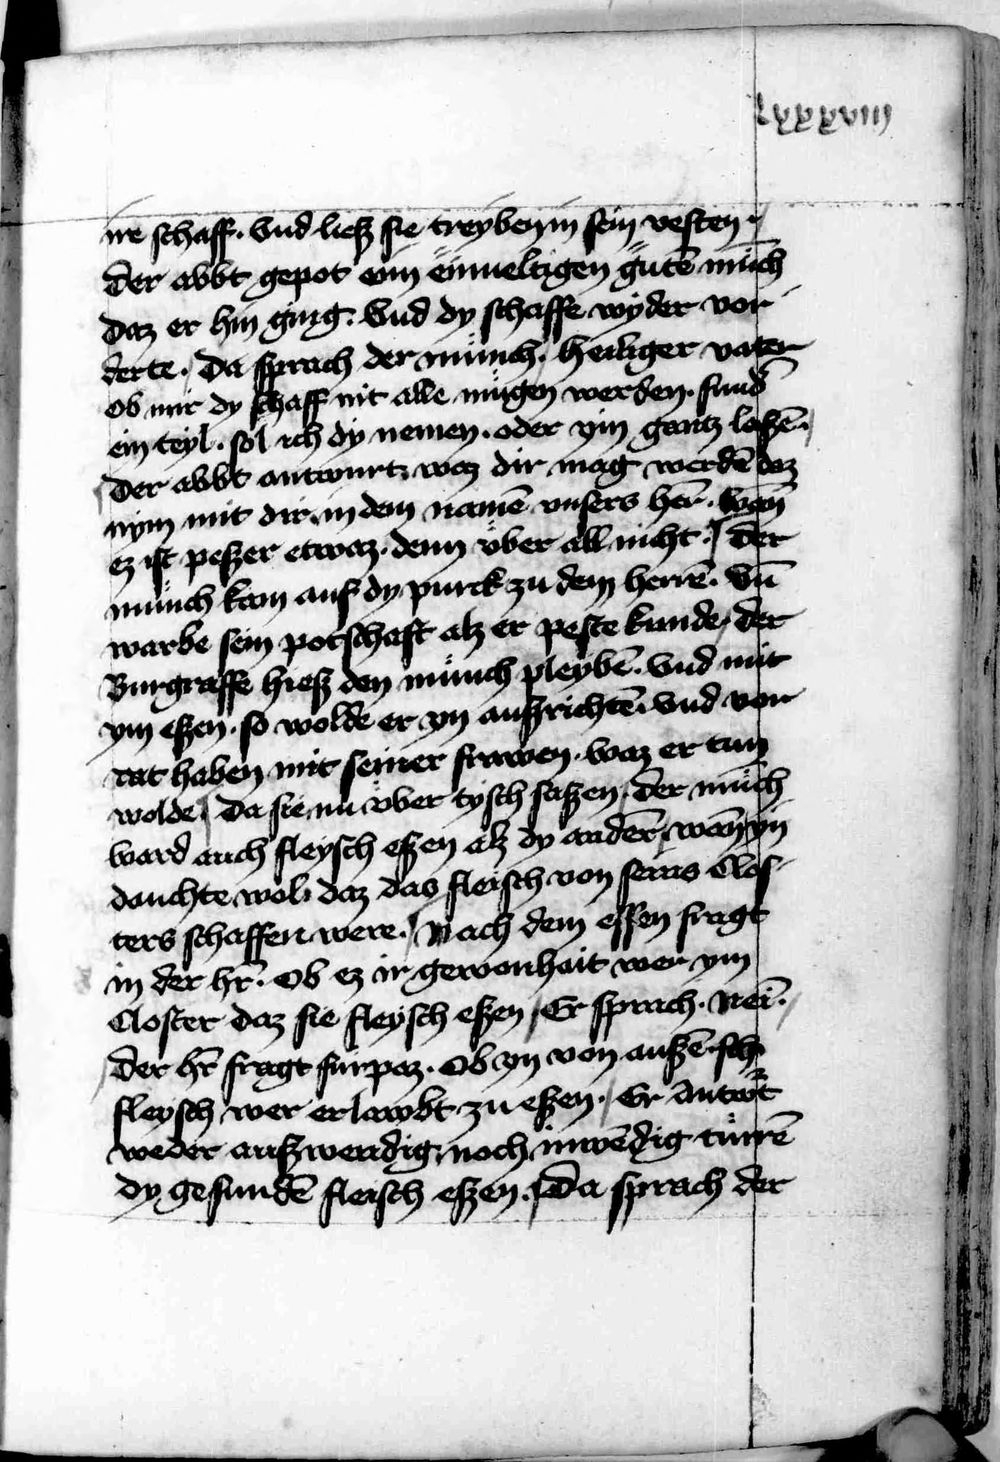 lxxxxviii
ire schaff. Vnd ließ sie treyben in sein vesten.
Der abbt gepot eim einueltigen gutē münch
daz er hin ging. Vnd dy schaffe wyder vor
derte. Da sprach der münch. heiliger vater
ob mir dy schaff nit alle mügen werden. sund̄
ein teyl. sol ich dy nemen. oder ym gantz loßen̄.
Der abbt antwurt waz dir mag werdē daz
nym mit dir in dem namē vnsers her̄. wan̄
ez ist peßer etwaz. denn vͤber all nicht. Der
münch kam auf dy purck zu dem herrē. Vn̄
warbe sein potschaft alz er peste kunde. der
Burgraffe hieß den münch pleybē. Vnd mit
ym eßen. so wolde er yn außrichtē. Vnd vor
rat haben mit seiner frawen. waz er tun
wolde. Da sie nu vͤber tysch saßen. der müch
ward auch fleysch eßen alz dy andern̄. wan̄ yn
douchte wol. daz das fleisch von seins Clos
ters schaffen were. Nach dem essen fragt
in der hr̄. ob ez ir gewonhait wer ym
Closter daz sie fleysch eßen. Er sprach. Nei̅.
Der hr̄ fragt fürpaz. Ob yn von außē sich
fleysch wer erlawbt zu eßen. Er Antwᵗ
weder außwendig noch inwēdig türrē
dy gesundē fleisch eßen. Da sprach der